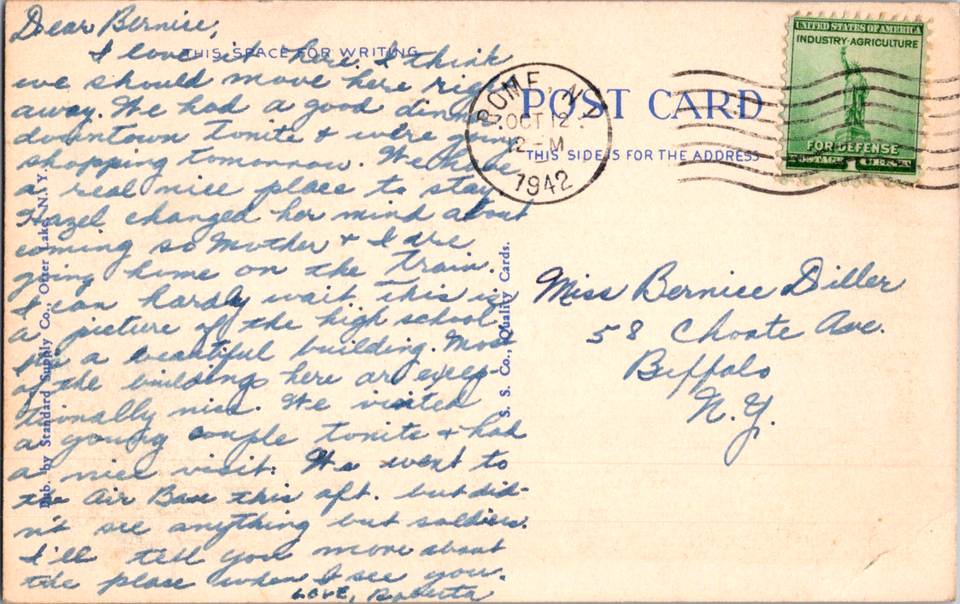 Dear Bernice,
THIS SPACE FOR WRITING
I love it here. I think
we should move here right
away. We had a good dinner
downtown tonite & we're going
shopping tomorrow. We have
a real nice place to stay.
Hazel changed her mind about
coming so Mother & I are
going home on the train.
I can hardly wait. this is
a picture of the high school.
a beautiful building. Most
of the buildings here are excep-
tionally nice. We visited
a young couple tonite & had
a nice visit. We went to
the Air Base this aft. but did-
n't see anything but soldiers.
I'll tell you more about
the place when I see you.
Love, Roberta
Pub. by Standard Supply Co., Otter Lake, N. Y.
S. S. Co., Quality Cards.
POST CARD
THIS SIDE IS FOR THE ADDRESS
ROME, N.Y.
OCT 12
12-M
1942
UNITED STATES OF AMERICA
INDUSTRY-AGRICULTURE
FOR DEFENSE
POSTAGE 1 CENTS
Miss Bernice Diller
58 Choate Ave.
Buffalo
N.Y.